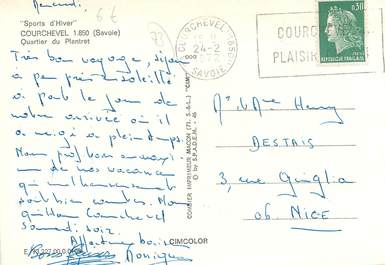 Mercredi.
6 €
73
"Sports d'Hiver"
COURCHEVEL 1.850 (Savoie)
Quartier du Plantret
Très bon voyage, séjour
à peu près ensoleillé
à part le jour de
notre arrivée où il
a neigé à plein temps.
Nous profitons au maxi-
mum de nos vacances
qui malheureusement
sont bien courtes. Nous
quittons Courchevel
Samedi soir.
Affectueux baisers
Monique
CIMCOLOR
COMBIER IMPRIMEUR MACON (71. S.-&-L.) "CIM"
© by S.P.A.D.E.M.
COURCHEVEL
24-2
1972
SAVOIE
0,30
COURCH
PLAISIR
Mr et Mme Henry
DESTAIS
3, rue Guiglia
06. NICE